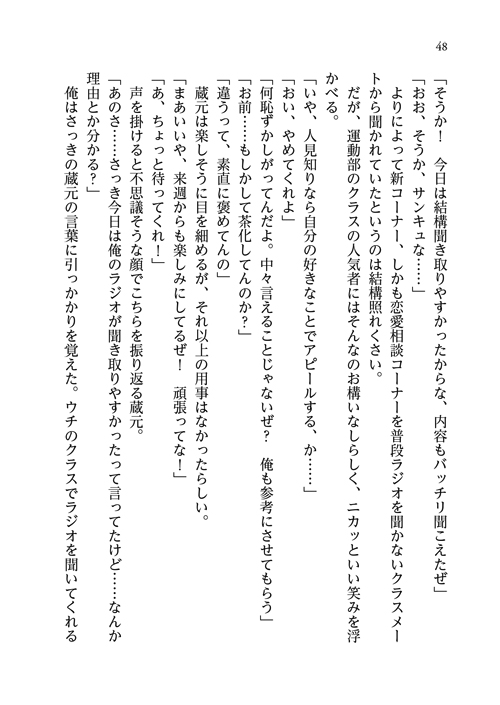 48
「そうか！　今日は結構聞き取りやすかったからな、内容もバッチリ聞こえたぜ」
「おお、そうか、サンキュな……」
　よりによって新コーナー、しかも恋愛相談コーナーを普段ラジオを聞かないクラスメー
トから聞かれていたというのは結構照れくさい。
　だが、運動部のクラスの人気者にはそんなのお構いなしらしく、ニカッといい笑みを浮
かべる。
「いや、人見知りなら自分の好きなことでアピールする、か……」
「おい、やめてくれよ」
「何恥ずかしがってんだよ。中々言えることじゃないぜ？　俺も参考にさせてもらう」
「お前……もしかして茶化してんのか？」
「違うって、素直に褒めてんの」
　蔵元は楽しそうに目を細めるが、それ以上の用事はなかったらしい。
「まあいいや、来週からも楽しみにしてるぜ！　頑張ってな！」
「あ、ちょっと待ってくれ！」
　声を掛けると不思議そうな顔でこちらを振り返る蔵元。
「あのさ……さっき今日は俺のラジオが聞き取りやすかったって言ってたけど……なんか
理由とか分かる？」
　俺はさっきの蔵元の言葉に引っかかりを覚えた。ウチのクラスでラジオを聞いてくれる